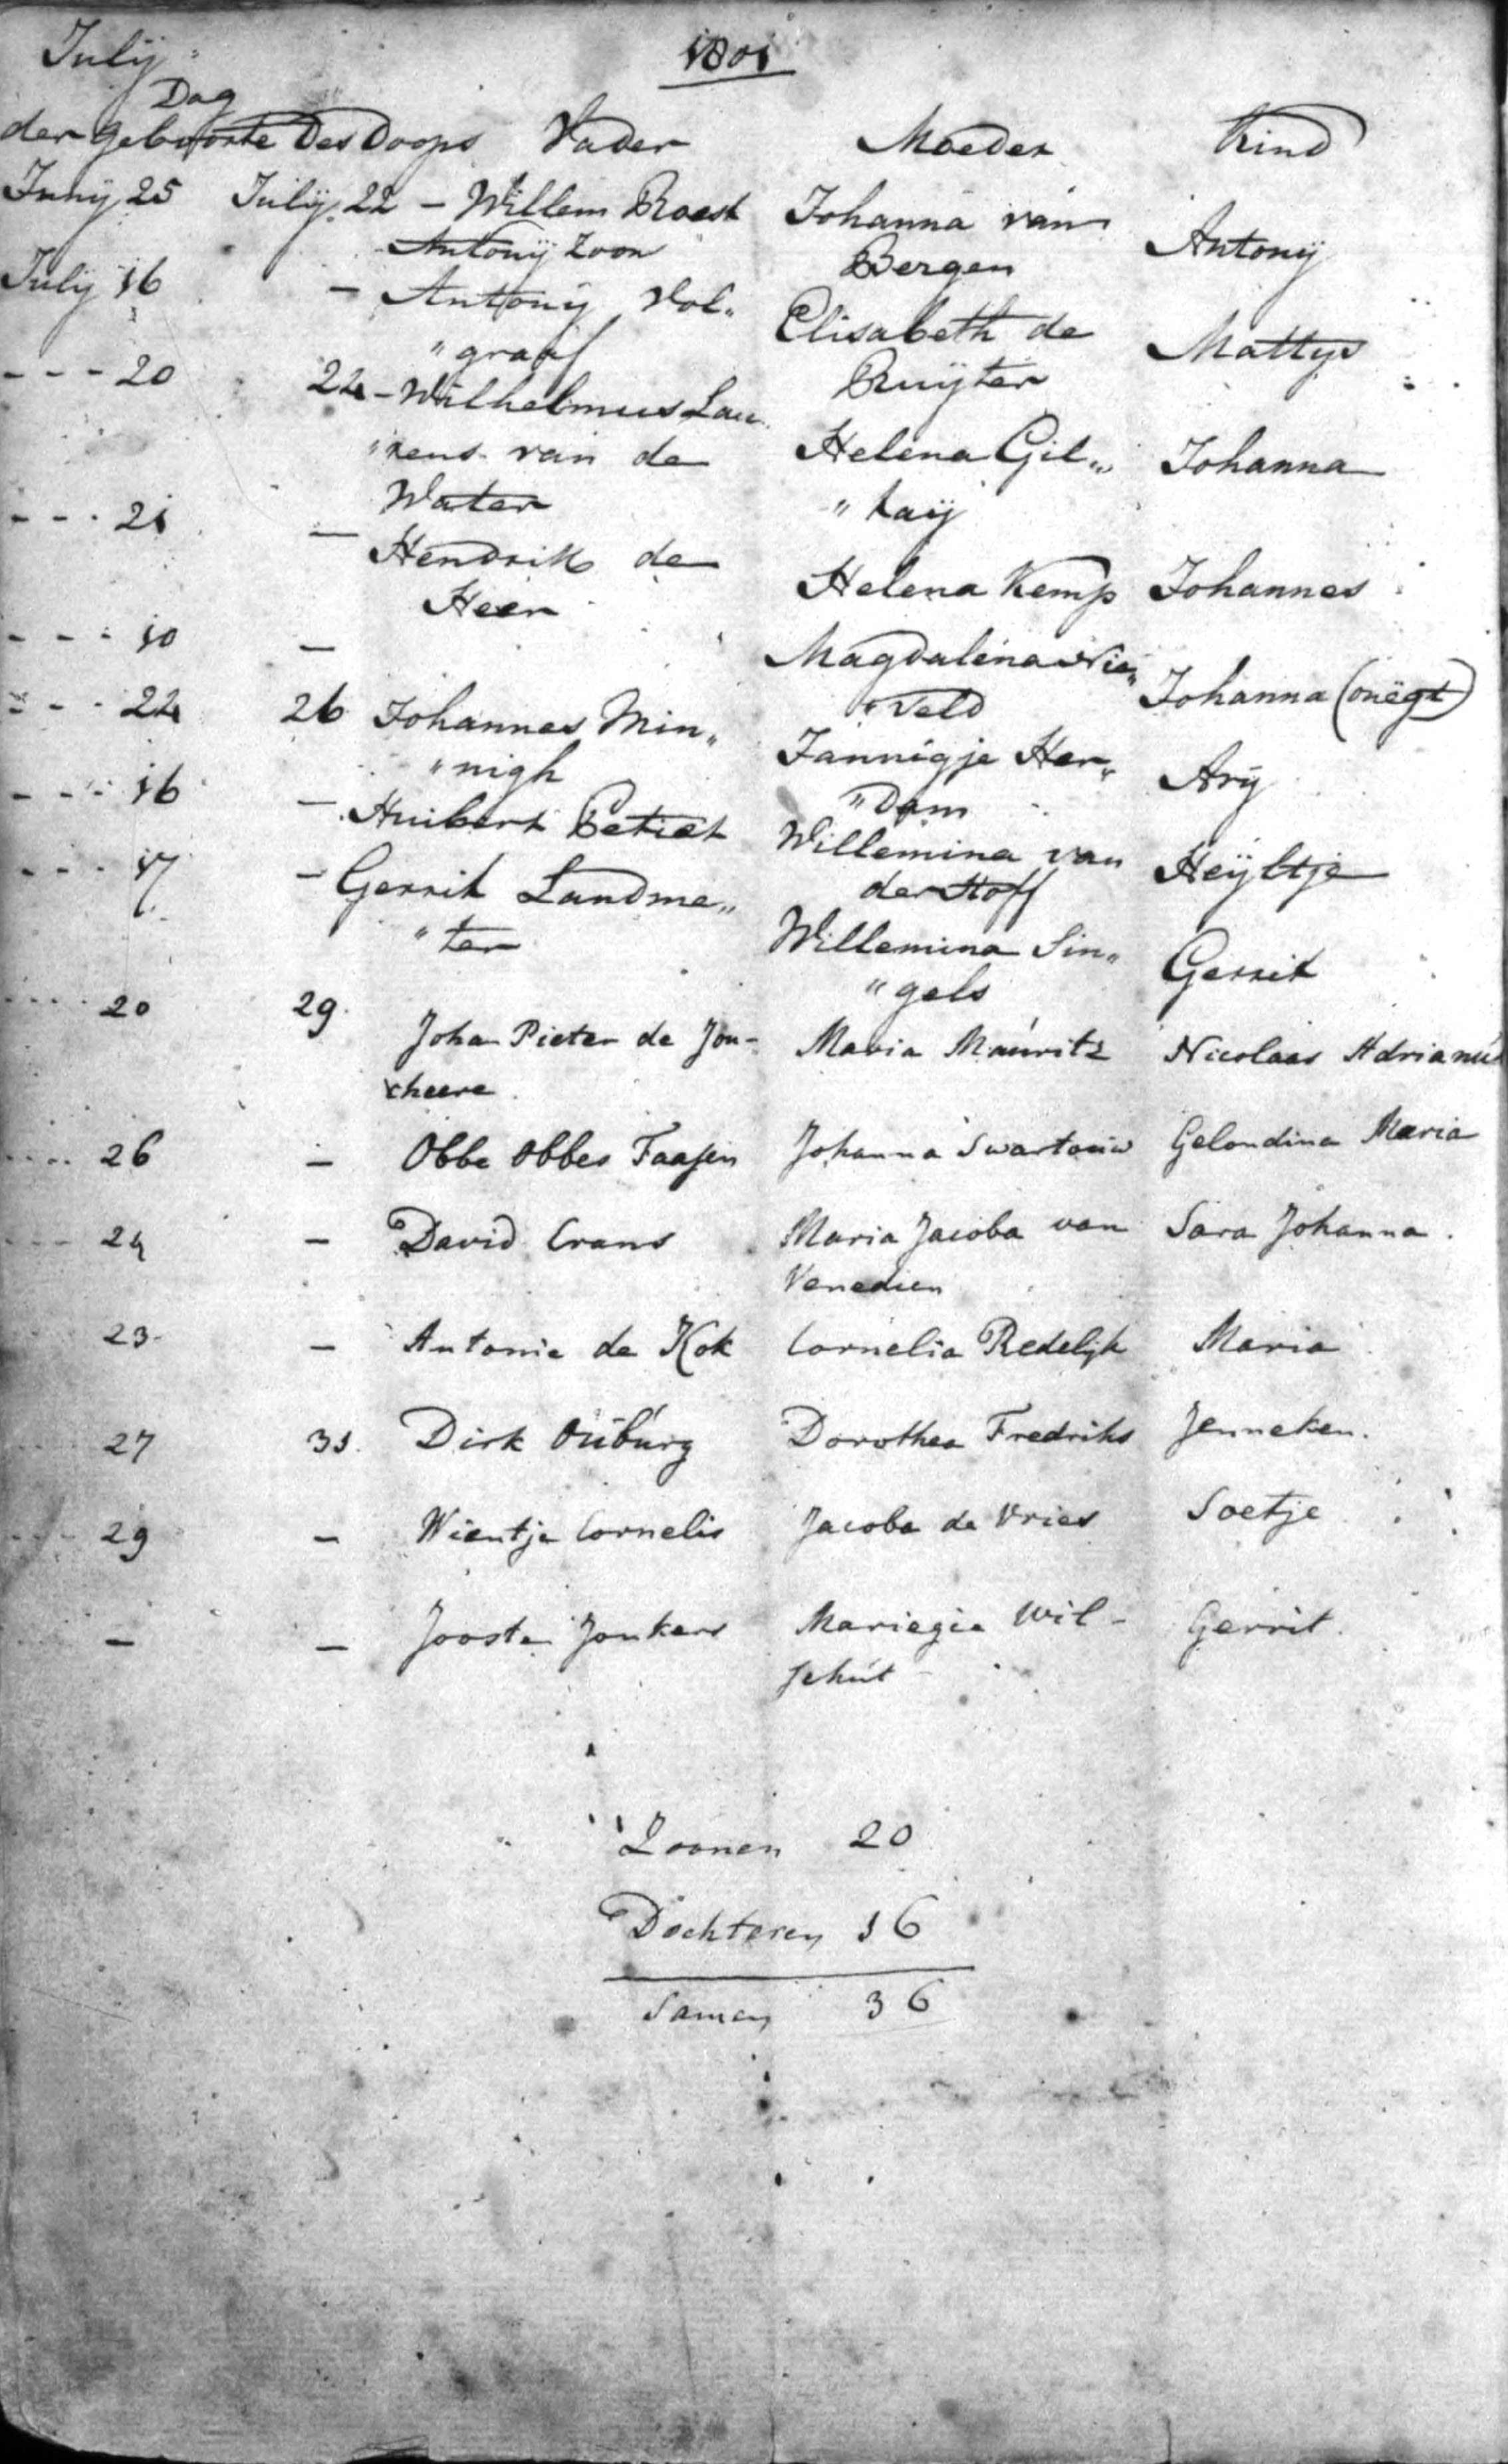 Julij 1801
Dag
der geboorte Des Doops Vader Moeder Kind
Junij 25 Julij 22 - Willem Roest Johanna van Antonij
Antonij Zoon Bergen
Julij 16 - Antonij Vol„ Elisabeth de Mattys
„graaf Ruijter
- - - 20 22 - Wilhelmus Lau Helena Gil„ Johanna
„rens van de „haij
Water
- - - 21 - Hendrik de Helena Kemp Johannes
Heer
- - - 10 - Magdalena Nie„ Johanna (onëgt)
„veld
- - - 22 26 Johannes Min„ Jannigje Her„ Arij
„nigh „Dam
- - - 16 - Huibert Petiet Willemina van Heijltje
der Hoff
- - - 17 - Gerrit Landme„ Willemina Sin„ Gerrit
„ter „gels
20 29. Joha Pieter de Jon- Maria Mauritz Nicolaas Adrianus
cheere
26 - Obbe Obbes Faasen Johanna Swartouw Gelondina Maria
24 - David Crans Maria Jacoba van Sara Johanna.
Venedien
23 - Antonie de Kok Cornelia Redelijk Maria
27 31. Dirk Ouburg Dorothea Fredriks Jenneken.
29 - Wientje Cornelis Jacoba de Vries Soetje
- - Jooste Jonkers Mariegie Wil- Gerrit.
schut
Zoonen 20
Dochteren 16
Samen 36